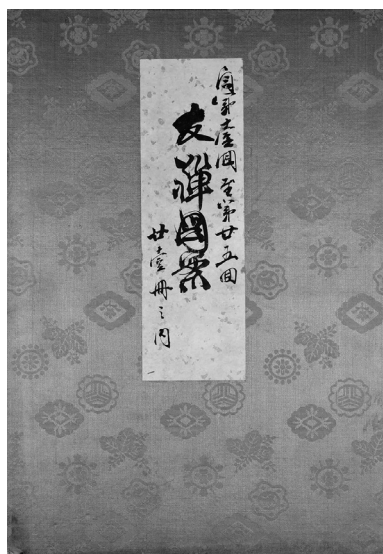 自第壹回至第廿五回
友禪圖案
廿壹冊之内